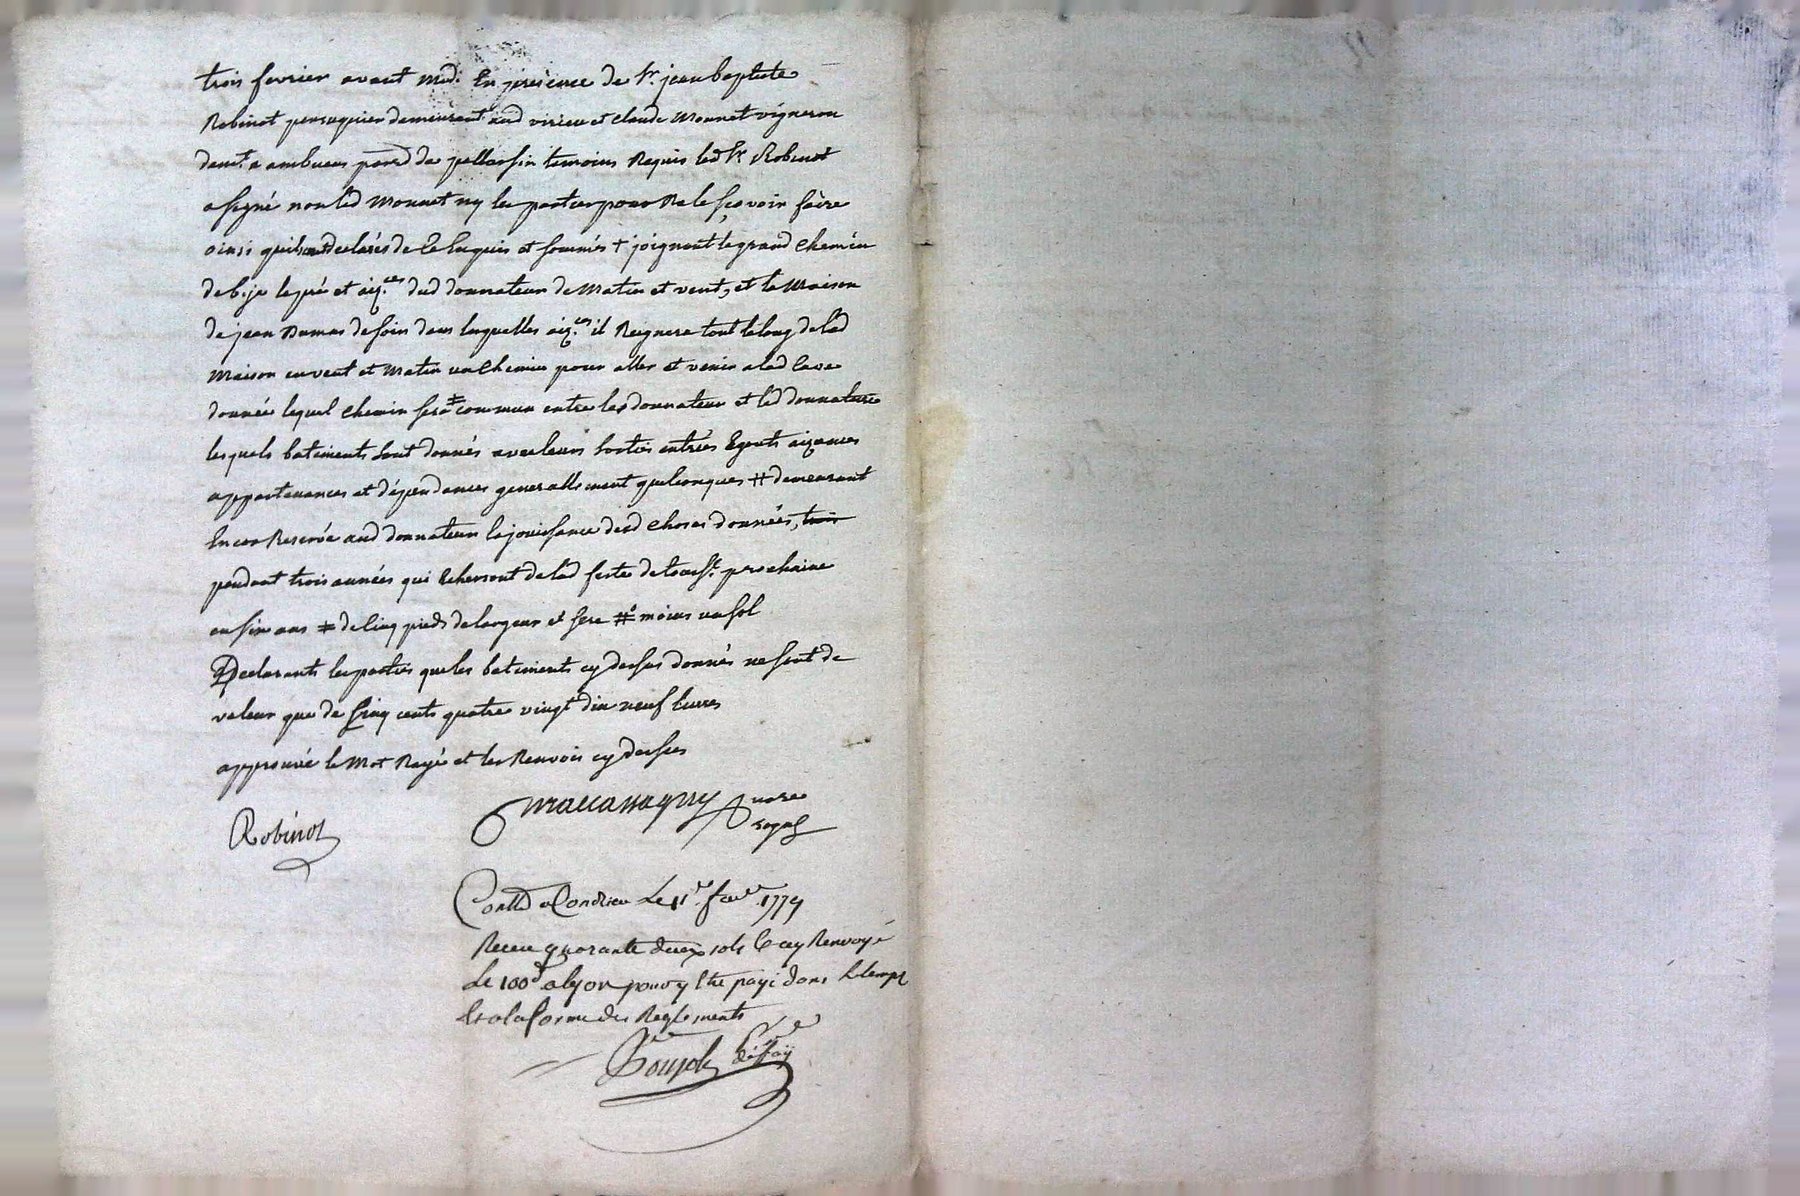 trois fevrier avant midi En presence de Sr. jean baptiste
Robinot peruquier demeurant aud virieu et Claude Monnet vigneron
demt. a ambuens parr. de pellassin temoins Requis led Sr. Robinot
a signé non led Monnet ny les parties pour Ne le sçavoir faire
ainsi quils ont declarés de Ce Enquis et sommés + joignant le grand Chemin
de bize le pré et aiz.ces dud donnateur de Matin et vent, et la Maison
de jean Dumas de soir dans lesquelles aiz.ces il Reignera tout le long de lad
Maison en vent et Matin un Chemin pour aller et venir a lad Cave
donnée lequel Chemin sera ‡ commun entre les donnateur et led donnataire
lesquels batiments sont donnés avec leurs sorties entrées Egouts aizances
appartenances et dépendances generallement quelconques # demeurant
Encor Reservée aud donnateur la jouissance desd Choses données, trois
pendant trois années qui Echerront de lad feste de touss.t prochaine
en six ans ‡ de Cinq pieds de largeur et sera # moins un sol
Declarants les parties que les batiments cy dessus donnés ne sont de
valeur que de Cinq cents quatre vingt dix neuf Livres
approuvé le Mot Rayé et les Renvois cy dessus
Maccassagny Nore
Royal
Robinot
Contllé a Condrieu Le 11e. fevr. 1779
Receu quarante deux sols Et ay Renvoyé
Le 100d. a lyon pour y Etre payé dans Le temps
Et a la forme des Reglements